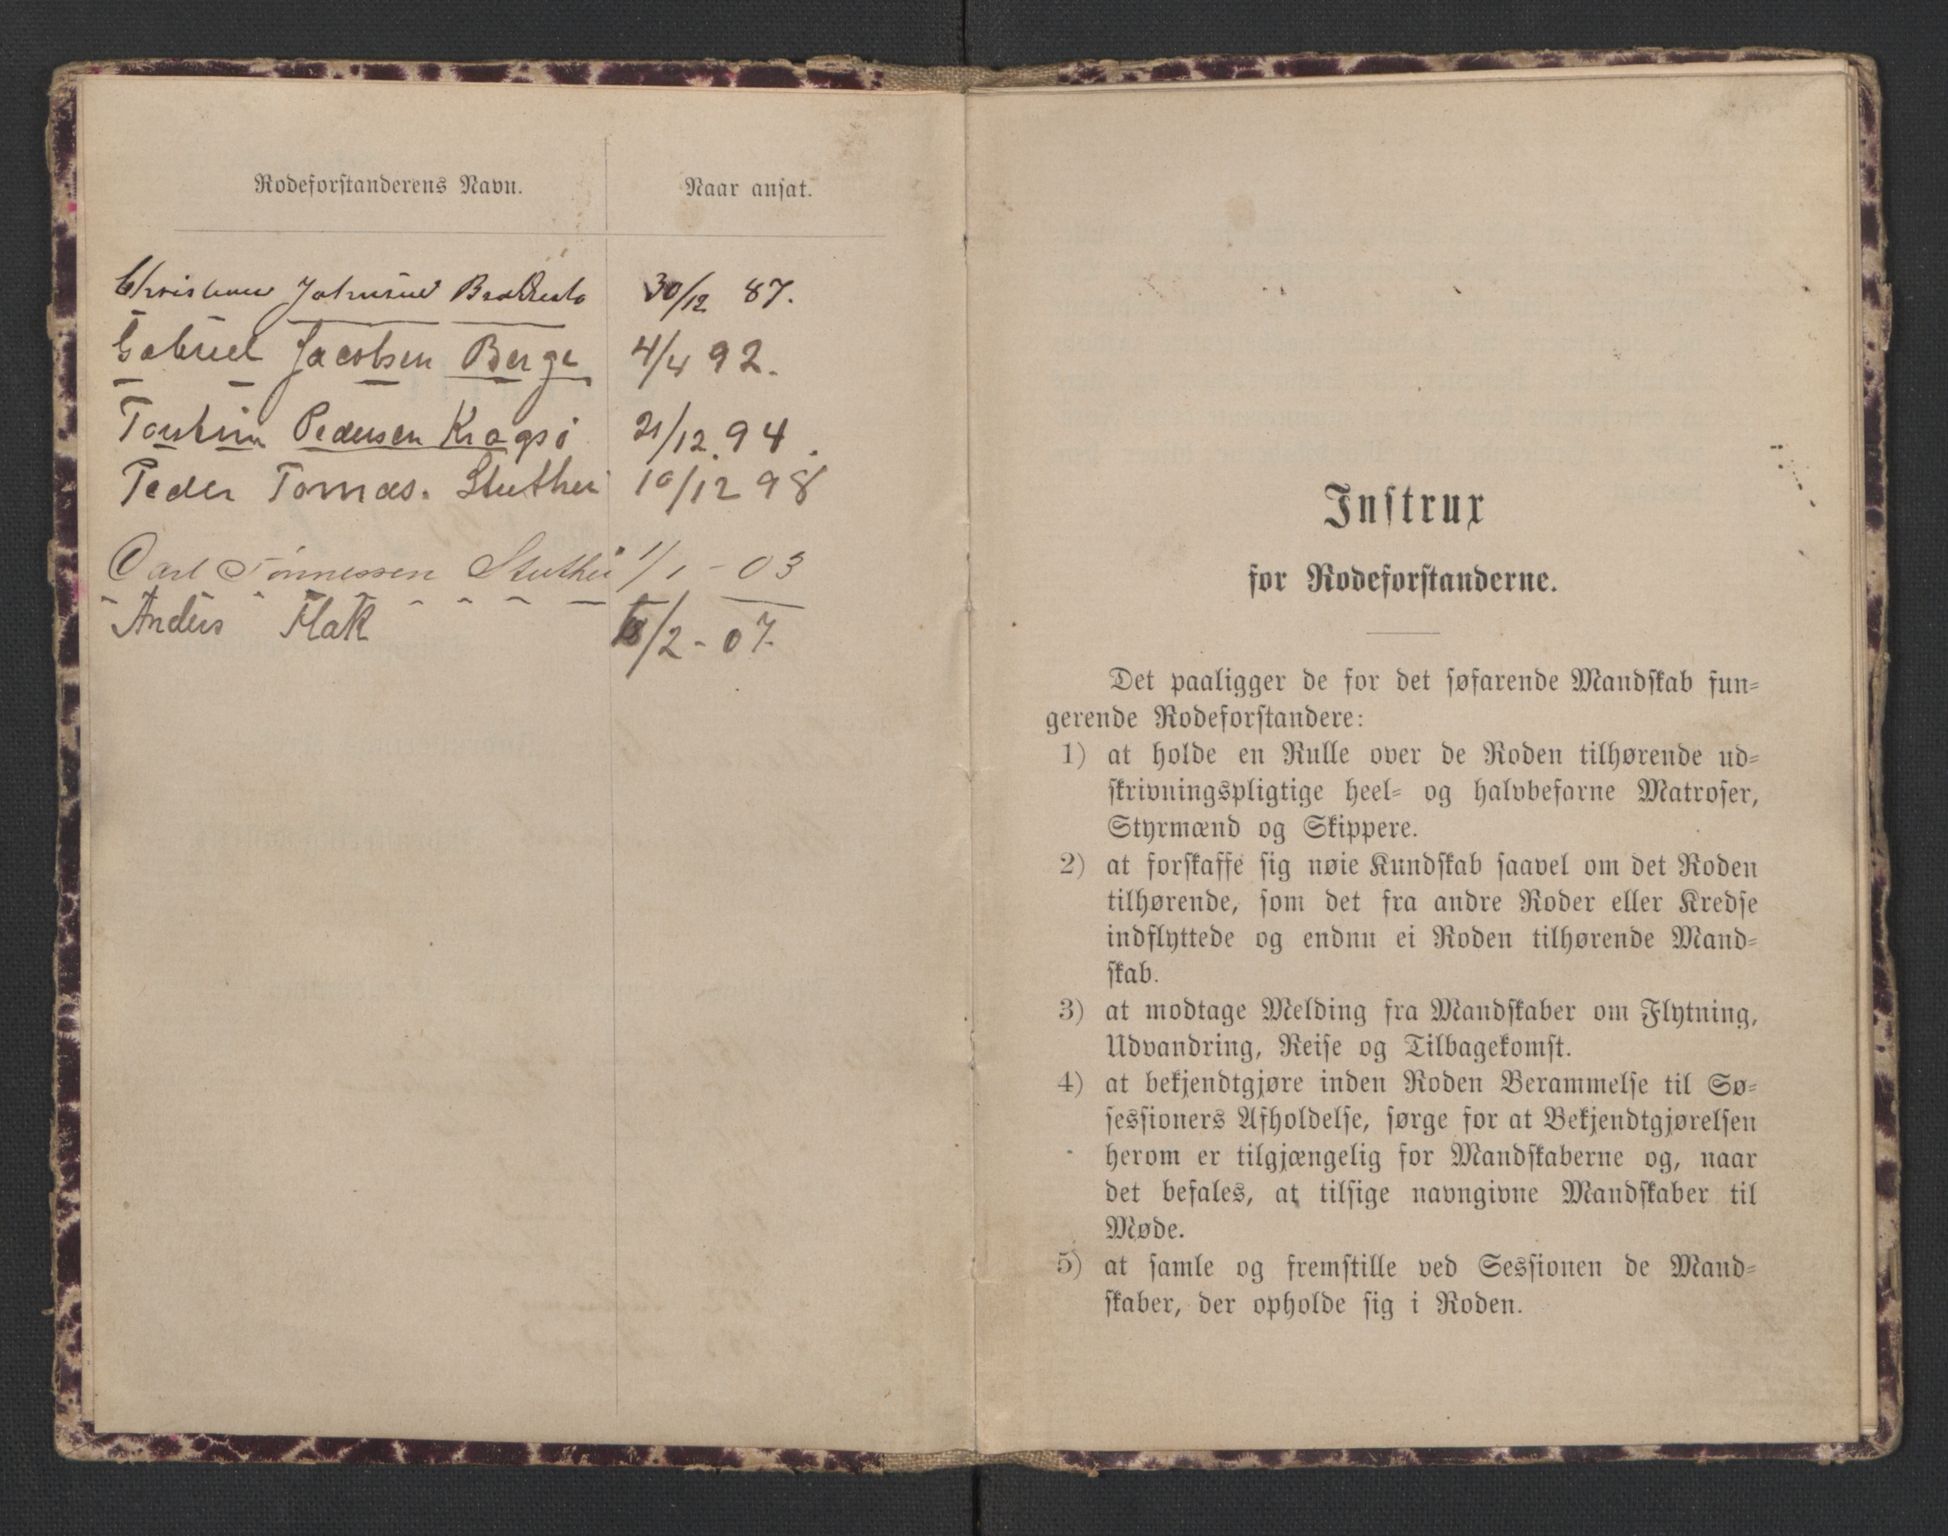 Rodeforstanderens Navn. Naar ansat.
Johnsen 30/12 87.
Gabriel Jacobsen Berge 4/4 92.
Pedersen Kragsö 21/12 94.
Peder Tomas. Stuthei 10/12 98
Carl Tönnessen Stuthei 1/1 - 03
Anders Flak /2 - 07.
Instrux
for Rodeforstanderne.
Det paaligger de for det søfarende Mandskab fun-
gerende Rodeforstandere:
1) at holde en Rulle over de Roden tilhørende ud-
skrivningspligtige heel- og halvbefarne Matroser,
Styrmænd og Skippere.
2) at forskaffe sig nøie Kundskab saavel om det Roden
tilhørende, som det fra andre Roder eller Kredse
indflyttede og endnu ei Roden tilhørende Mand-
skab.
3) at modtage Melding fra Mandskaber om Flytning,
Udvandring, Reise og Tilbagekomst.
4) at bekjendtgjøre inden Roden Berammelse til Sø-
sessioners Afholdelse, sørge for at Bekjendtgjørelsen
herom er tilgjængelig for Mandskaberne og, naar
det befales, at tilsige navngivne Mandskaber til
Møde.
5) at samle og fremstille ved Sessionen de Mand-
skaber, der opholde sig i Roden.